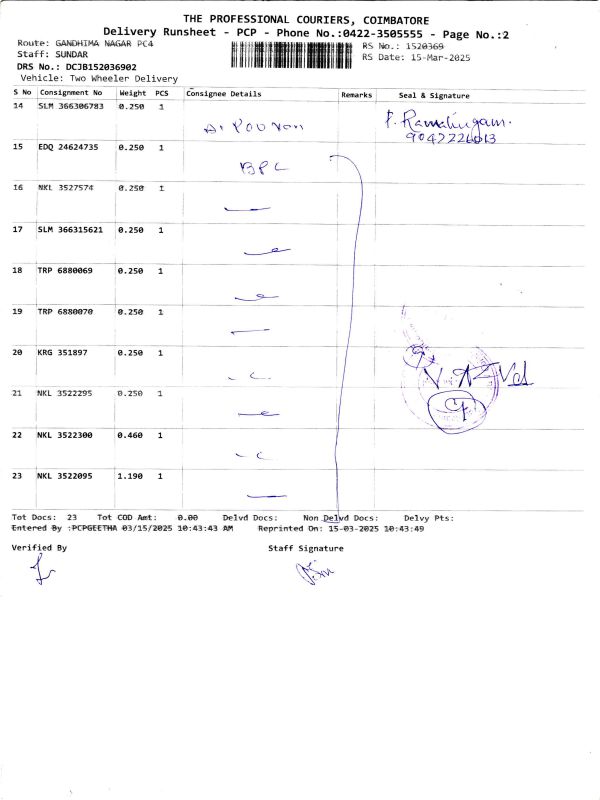 THE PROFESSIONAL COURIERS, COIMBATORE
Delivery Runsheet - PCP - Phone No.:0422-3505555 - Page No.:2
Route: GANDHIMA NAGAR PC4
RS No.: 1520369
Staff: SUNDAR
RS Date: 15-Mar-2025
DRS No.: DCJB152036902
Vehicle: Two Wheeler Delivery
S No Consignment No Weight PCS Consignee Details Remarks Seal & Signature
14 SLM 366306783 0.250 1
P. Ramalingam.
15 EDQ 24624735 0.250 1
BPC
16 NKL 3527574 0.250 1
17 SLM 366315621 0.250 1
18 TRP 6880069 0.250 1
19 TRP 6880070 0.250 1
20 KRG 351897 0.250 1
21 NKL 3522295 0.250 1
22 NKL 3522300 0.460 1
23 NKL 3522095 1.190 1
Tot Docs: 23 Tot COD Amt: 0.00 Delvd Docs: Non Delvd Docs: Delvy Pts:
Entered By :PCPGEETHA 03/15/2025 10:43:43 AM Reprinted On: 15-03-2025 10:43:49
Verified By Staff Signature